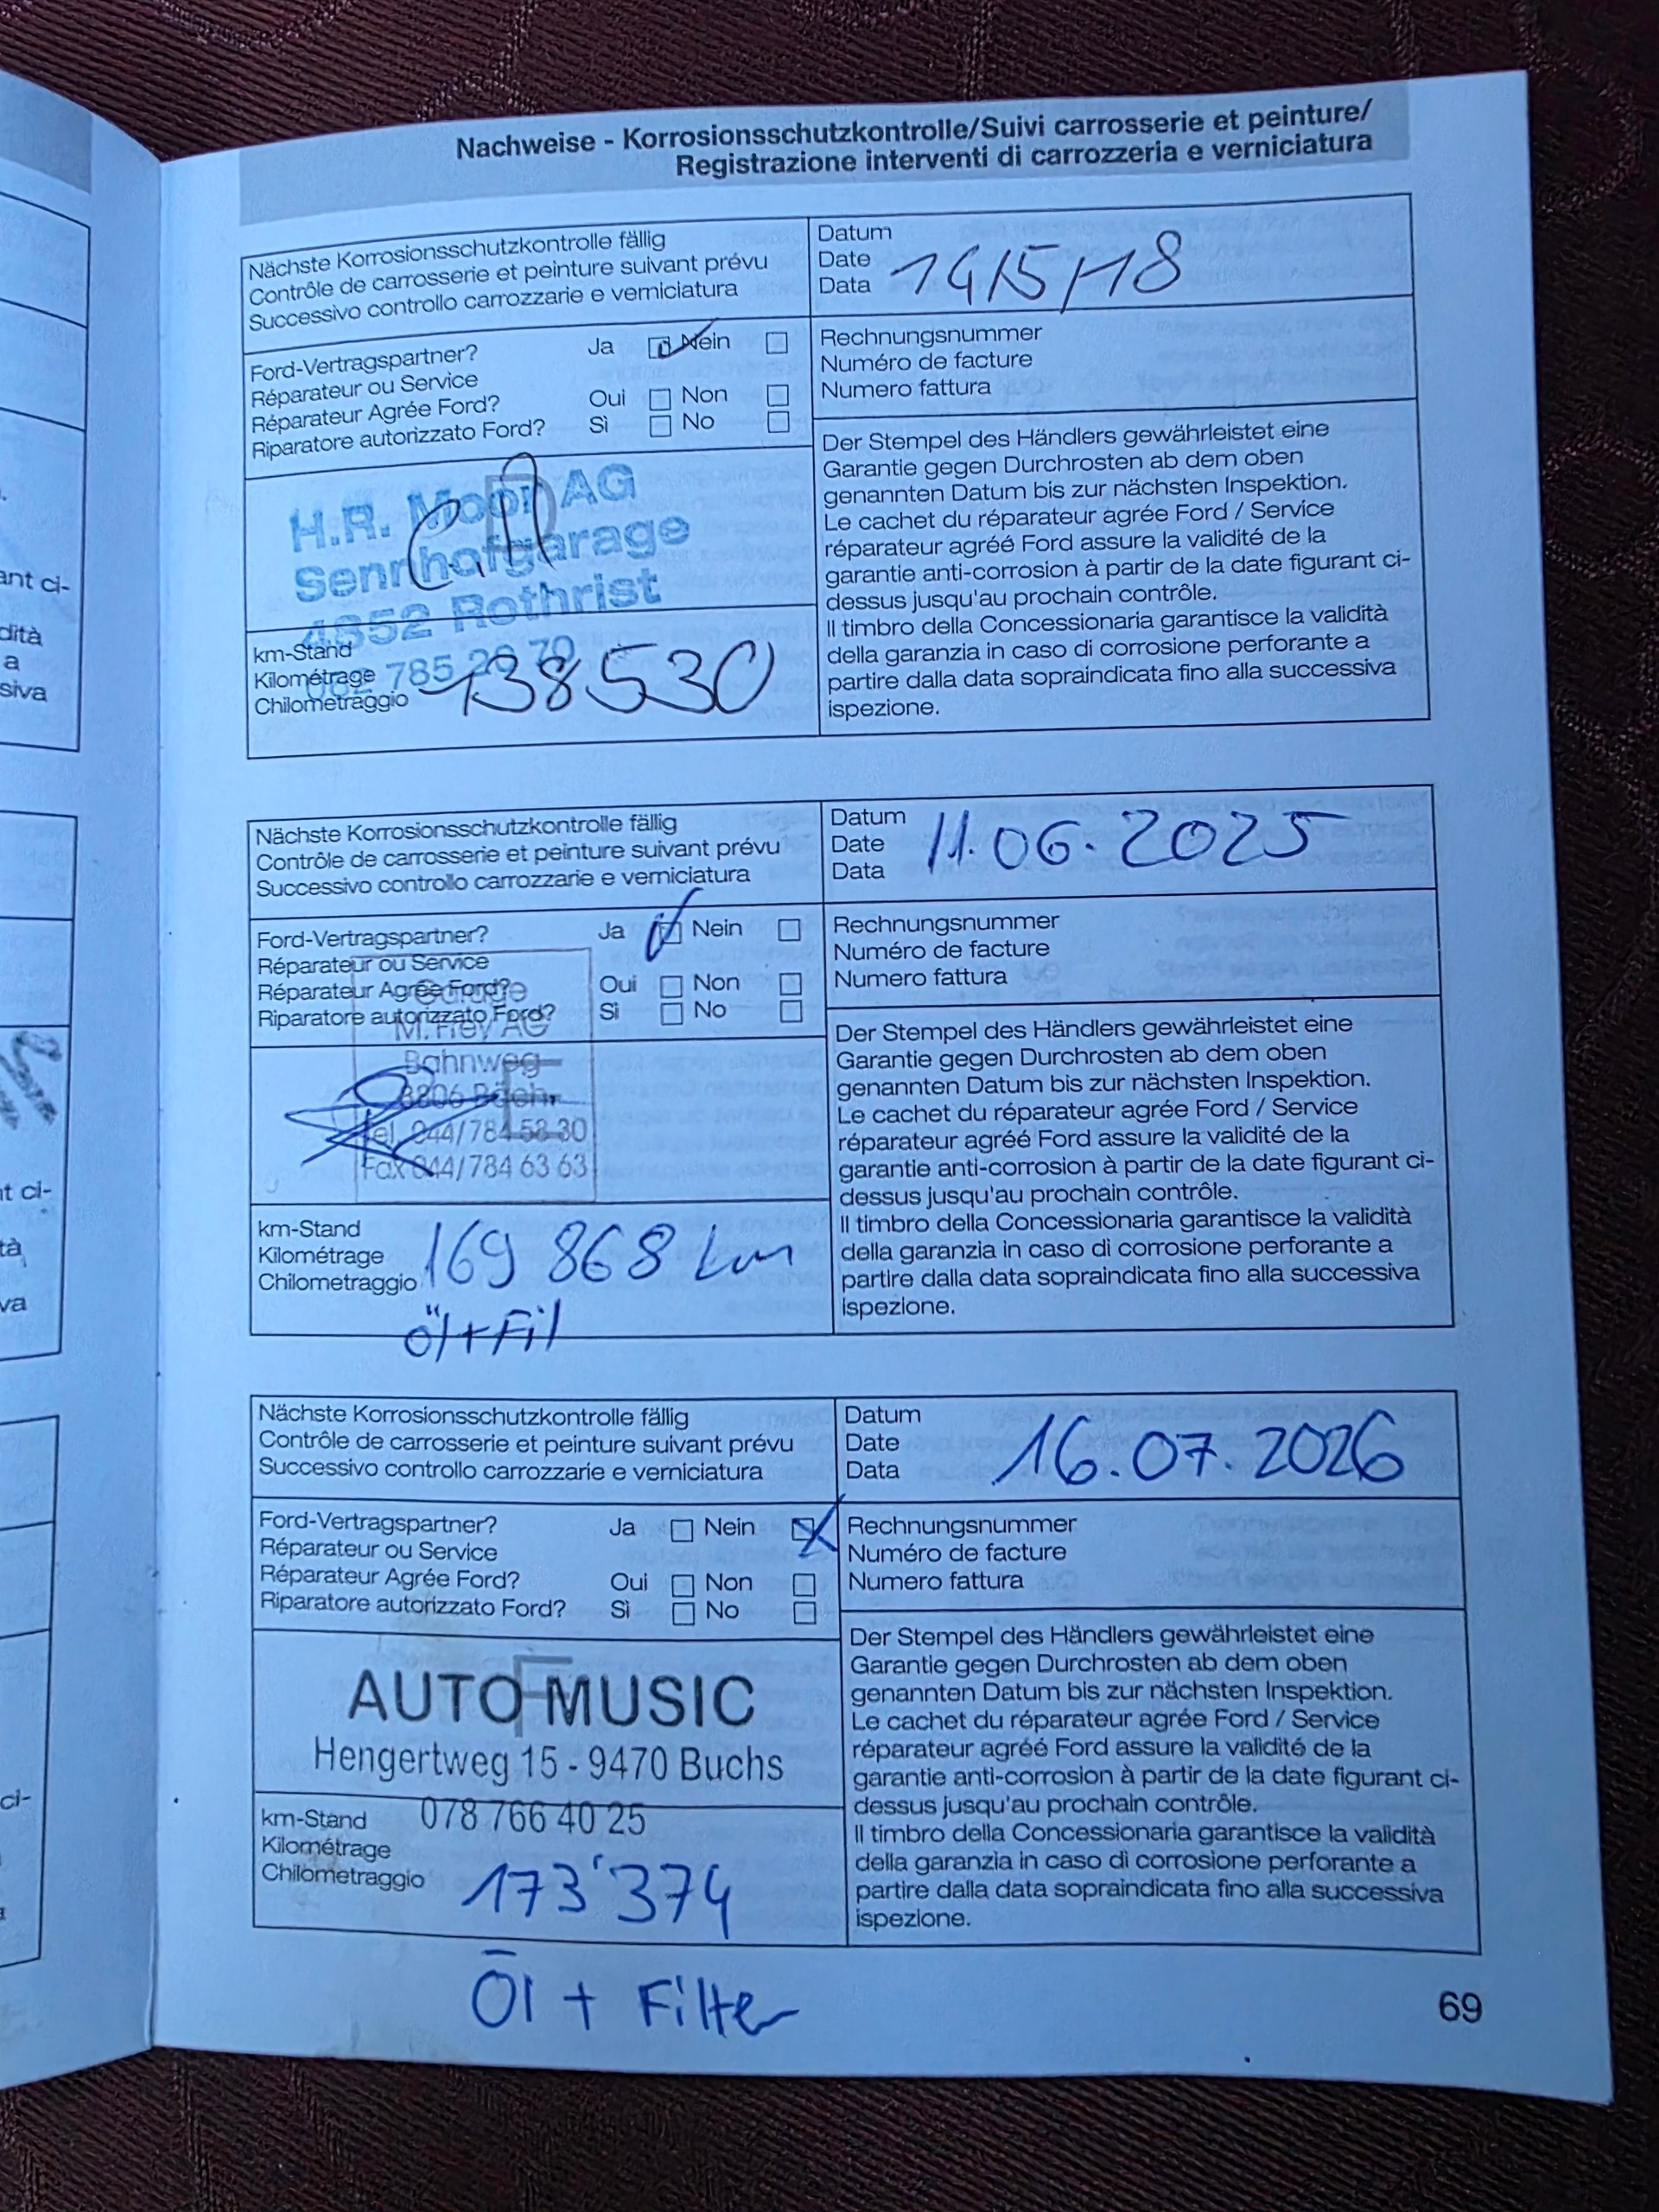 ant ci-
dità
a
siva
t ci-
tà
va
ci-
Nachweise - Korrosionsschutzkontrolle/Suivi carrosserie et peinture/
Registrazione interventi di carrozzeria e verniciatura
Nächste Korrosionsschutzkontrolle fällig
Contrôle de carrosserie et peinture suivant prévu
Successivo controllo carrozzarie e verniciatura
Datum
Date
Data
14/5/18
Ford-Vertragspartner? Ja Nein
Réparateur ou Service
Réparateur Agrée Ford? Oui Non
Riparatore autorizzato Ford? Sì No
Rechnungsnummer
Numéro de facture
Numero fattura
H.R. Moor AG
Sennhofgarage
4852 Rothrist
062 785 20 70
km-Stand
Kilométrage
Chilometraggio
138530
Der Stempel des Händlers gewährleistet eine
Garantie gegen Durchrosten ab dem oben
genannten Datum bis zur nächsten Inspektion.
Le cachet du réparateur agrée Ford / Service
réparateur agréé Ford assure la validité de la
garantie anti-corrosion à partir de la date figurant ci-
dessus jusqu'au prochain contrôle.
Il timbro della Concessionaria garantisce la validità
della garanzia in caso di corrosione perforante a
partire dalla data sopraindicata fino alla successiva
ispezione.
Nächste Korrosionsschutzkontrolle fällig
Contrôle de carrosserie et peinture suivant prévu
Successivo controllo carrozzarie e verniciatura
Datum
Date
Data
11.06.2025
Ford-Vertragspartner? Ja Nein
Réparateur ou Service
Réparateur Agrée Ford? Oui Non
Riparatore autorizzato Ford? Sì No
Rechnungsnummer
Numéro de facture
Numero fattura
Garage
M. Frey AG
Bahnweg
8806 Bäch
Tel. 044/784 58 30
Fax 044/784 63 63
km-Stand
Kilométrage
Chilometraggio
169 868 km
öl+Fil
Der Stempel des Händlers gewährleistet eine
Garantie gegen Durchrosten ab dem oben
genannten Datum bis zur nächsten Inspektion.
Le cachet du réparateur agrée Ford / Service
réparateur agréé Ford assure la validité de la
garantie anti-corrosion à partir de la date figurant ci-
dessus jusqu'au prochain contrôle.
Il timbro della Concessionaria garantisce la validità
della garanzia in caso di corrosione perforante a
partire dalla data sopraindicata fino alla successiva
ispezione.
Nächste Korrosionsschutzkontrolle fällig
Contrôle de carrosserie et peinture suivant prévu
Successivo controllo carrozzarie e verniciatura
Datum
Date
Data
16.07.2026
Ford-Vertragspartner? Ja Nein
Réparateur ou Service
Réparateur Agrée Ford? Oui Non
Riparatore autorizzato Ford? Sì No
Rechnungsnummer
Numéro de facture
Numero fattura
AUTO MUSIC
Hengertweg 15 - 9470 Buchs
078 766 40 25
km-Stand
Kilométrage
Chilometraggio
173'374
Der Stempel des Händlers gewährleistet eine
Garantie gegen Durchrosten ab dem oben
genannten Datum bis zur nächsten Inspektion.
Le cachet du réparateur agrée Ford / Service
réparateur agréé Ford assure la validité de la
garantie anti-corrosion à partir de la date figurant ci-
dessus jusqu'au prochain contrôle.
Il timbro della Concessionaria garantisce la validità
della garanzia in caso di corrosione perforante a
partire dalla data sopraindicata fino alla successiva
ispezione.
Öl + Filter
69